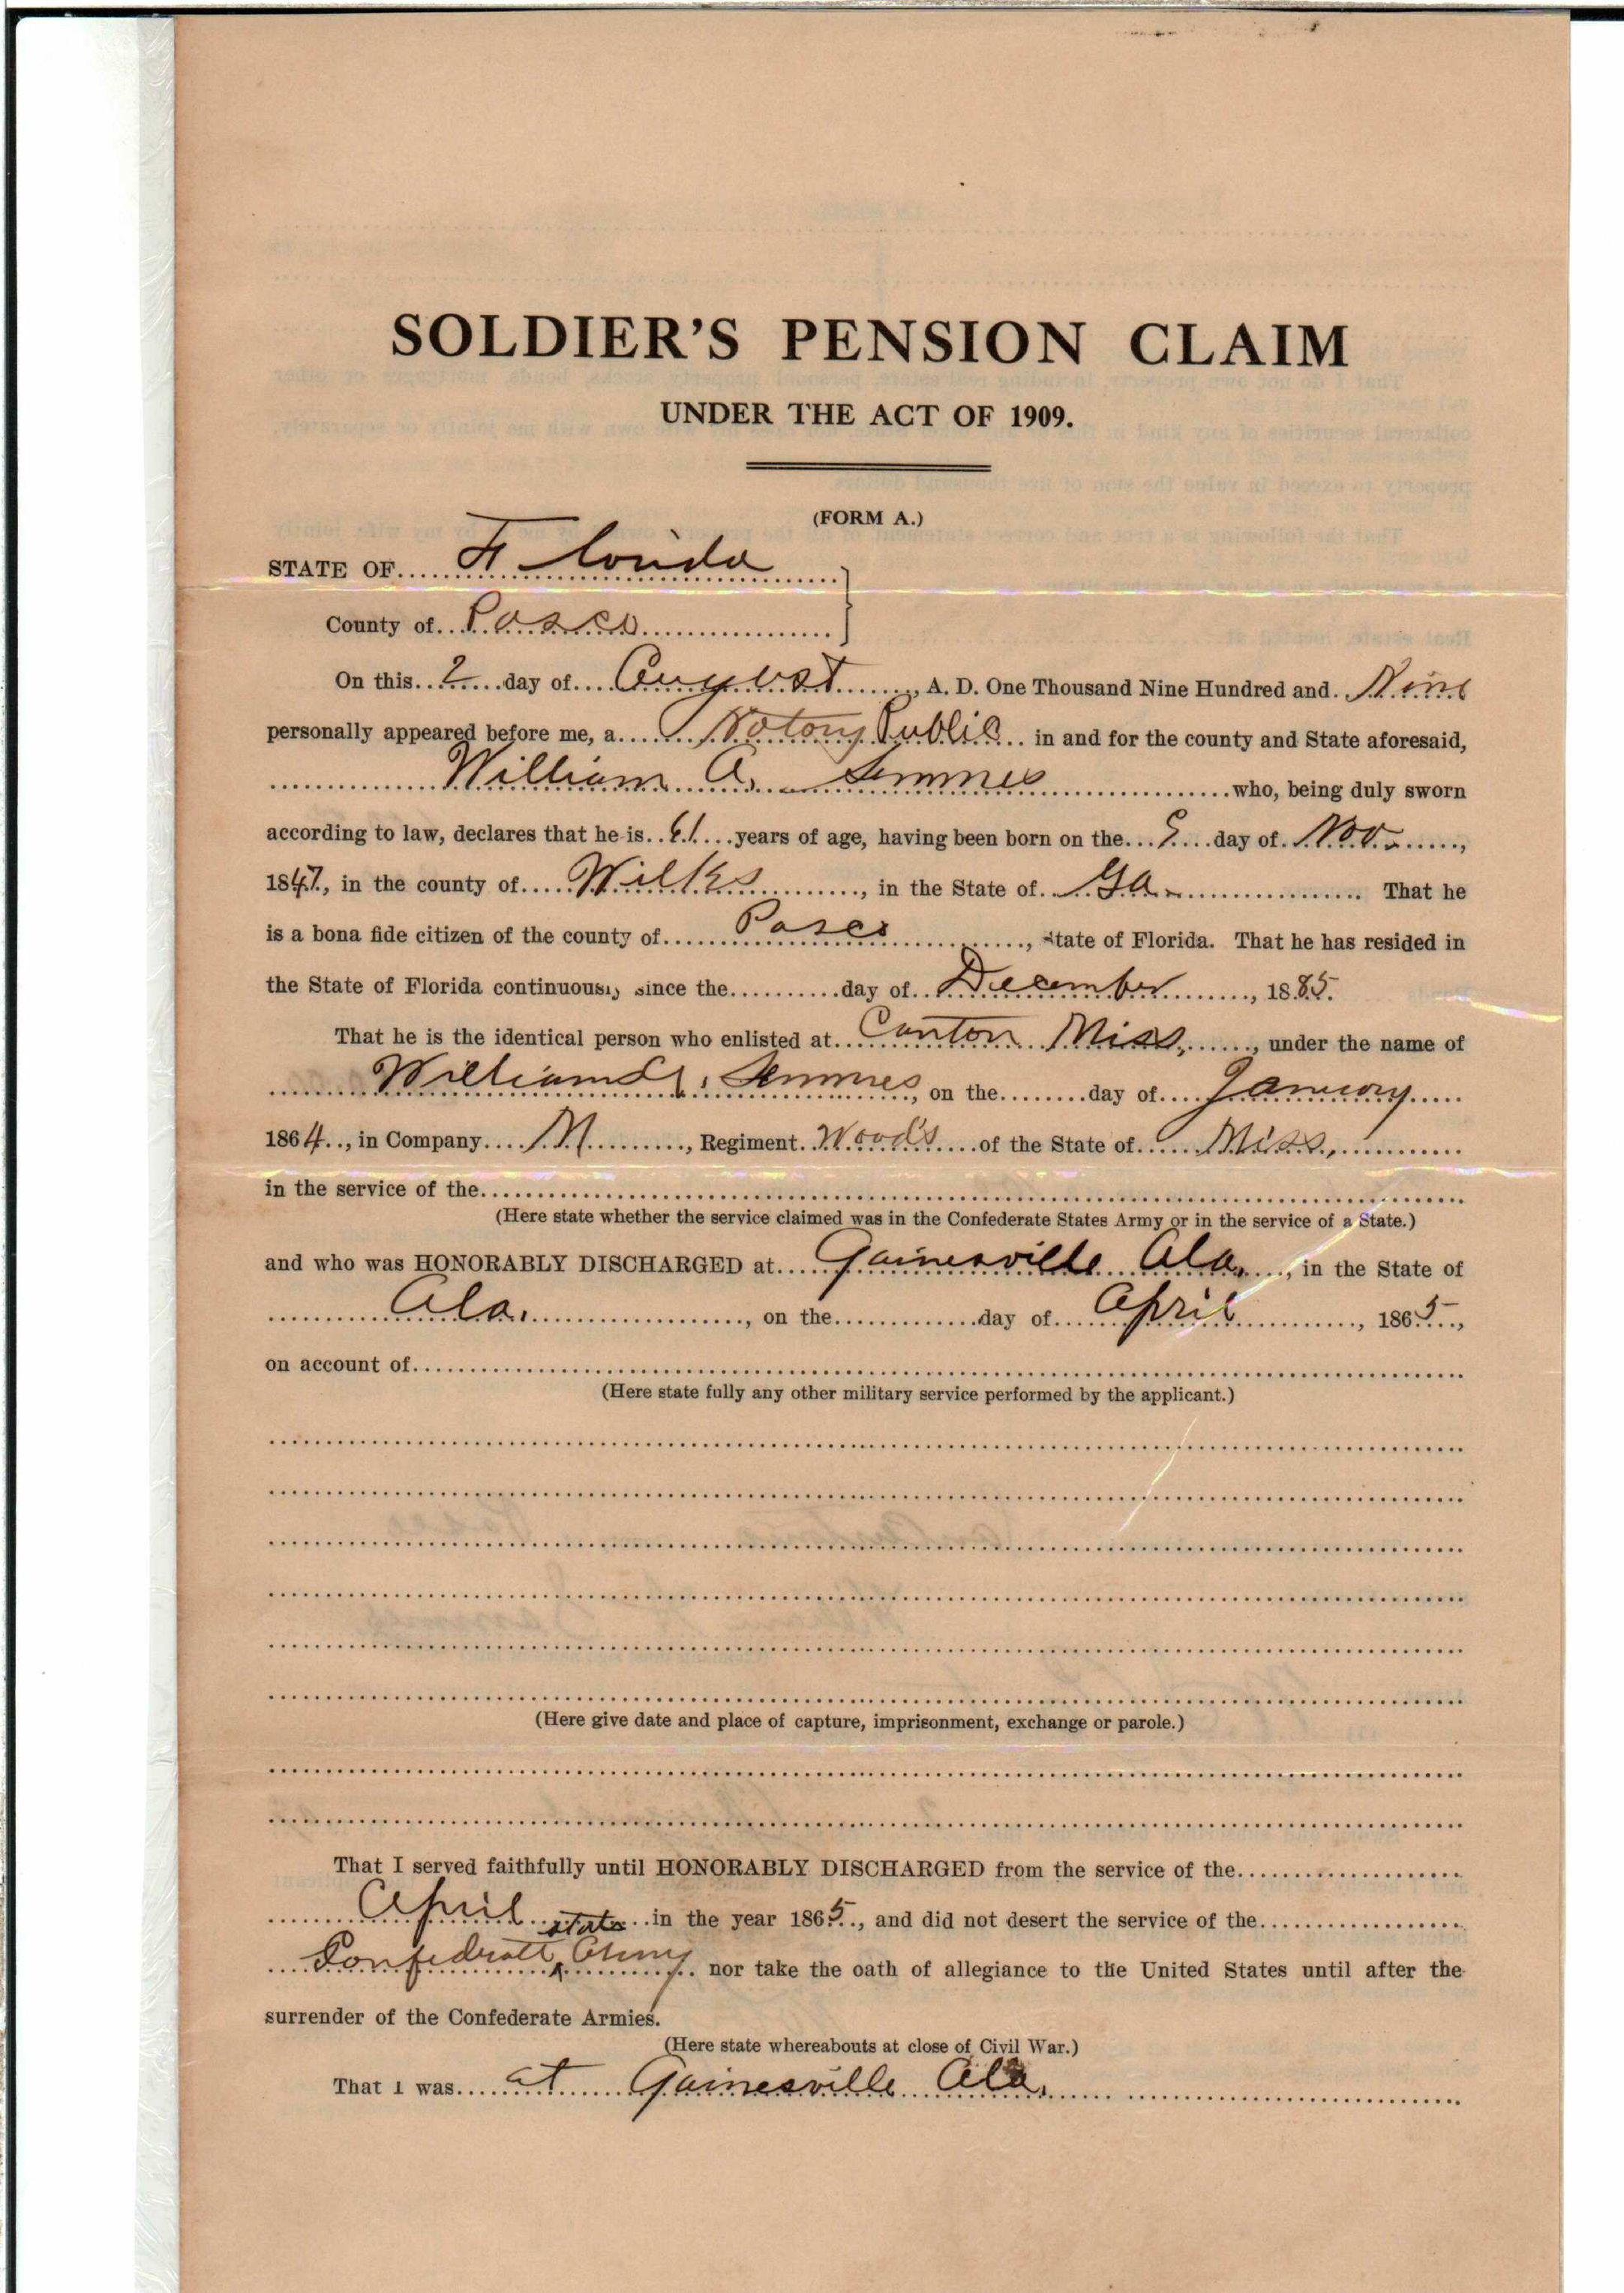 SOLDIER'S PENSION CLAIM
UNDER THE ACT OF 1909.
(FORM A.)
STATE OF Florida
County of Pasco
On this 2 day of August, A. D. One Thousand Nine Hundred and Nine
personally appeared before me, a Notary Public in and for the county and State aforesaid,
William A. Semmes who, being duly sworn
according to law, declares that he is 61 years of age, having been born on the day of Nov.,
1847, in the county of Wilks, in the State of Ga. That he
is a bona fide citizen of the county of Pasco, State of Florida. That he has resided in
the State of Florida continuously since the day of December, 1885.
That he is the identical person who enlisted at Canton Miss., under the name of
William Semmes, on the day of January
1864, in Company M, Regiment Wood's of the State of Miss.,
in the service of the
(Here state whether the service claimed was in the Confederate States Army or in the service of a State.)
and who was HONORABLY DISCHARGED at Gainesville Ala., in the State of
Ala., on the day of April, 1865,
on account of
(Here state fully any other military service performed by the applicant.)
(Here give date and place of capture, imprisonment, exchange or parole.)
That I served faithfully until HONORABLY DISCHARGED from the service of the
April in the year 1865, and did not desert the service of the
Confederate State Army nor take the oath of allegiance to the United States until after the
surrender of the Confederate Armies.
(Here state whereabouts at close of Civil War.)
That I was at Gainesville Ala.